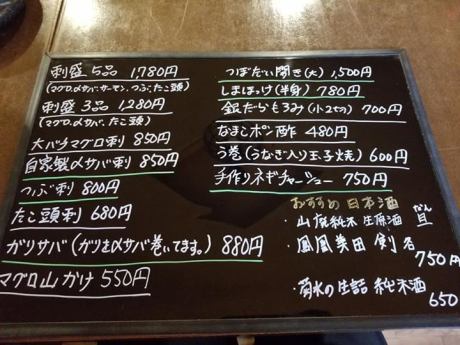 刺盛 5品 1,780円
(マグロ、〆サバ、サーモン、つぶ、たこ頭)
刺盛 3品 1,280円
(マグロ、〆サバ、たこ頭)
大バチマグロ刺 850円
自家製〆サバ刺 850円
つぶ刺 800円
たこ頭刺 680円
ガリサバ(ガリを〆サバ巻いてます。) 880円
マグロ山かけ 550円
つぼだい開き(大) 1,500円
しまほっけ(半身) 780円
銀だらもろみ(小2切) 700円
なまこポン酢 480円
う巻(うなぎ入り玉子焼) 600円
手作りネギチャーシュー 750円
おすすめ日本酒
・山廃純米生原酒 旦
・鳳凰美田 剣 各
750円
・菊水の生詰 純米酒
650